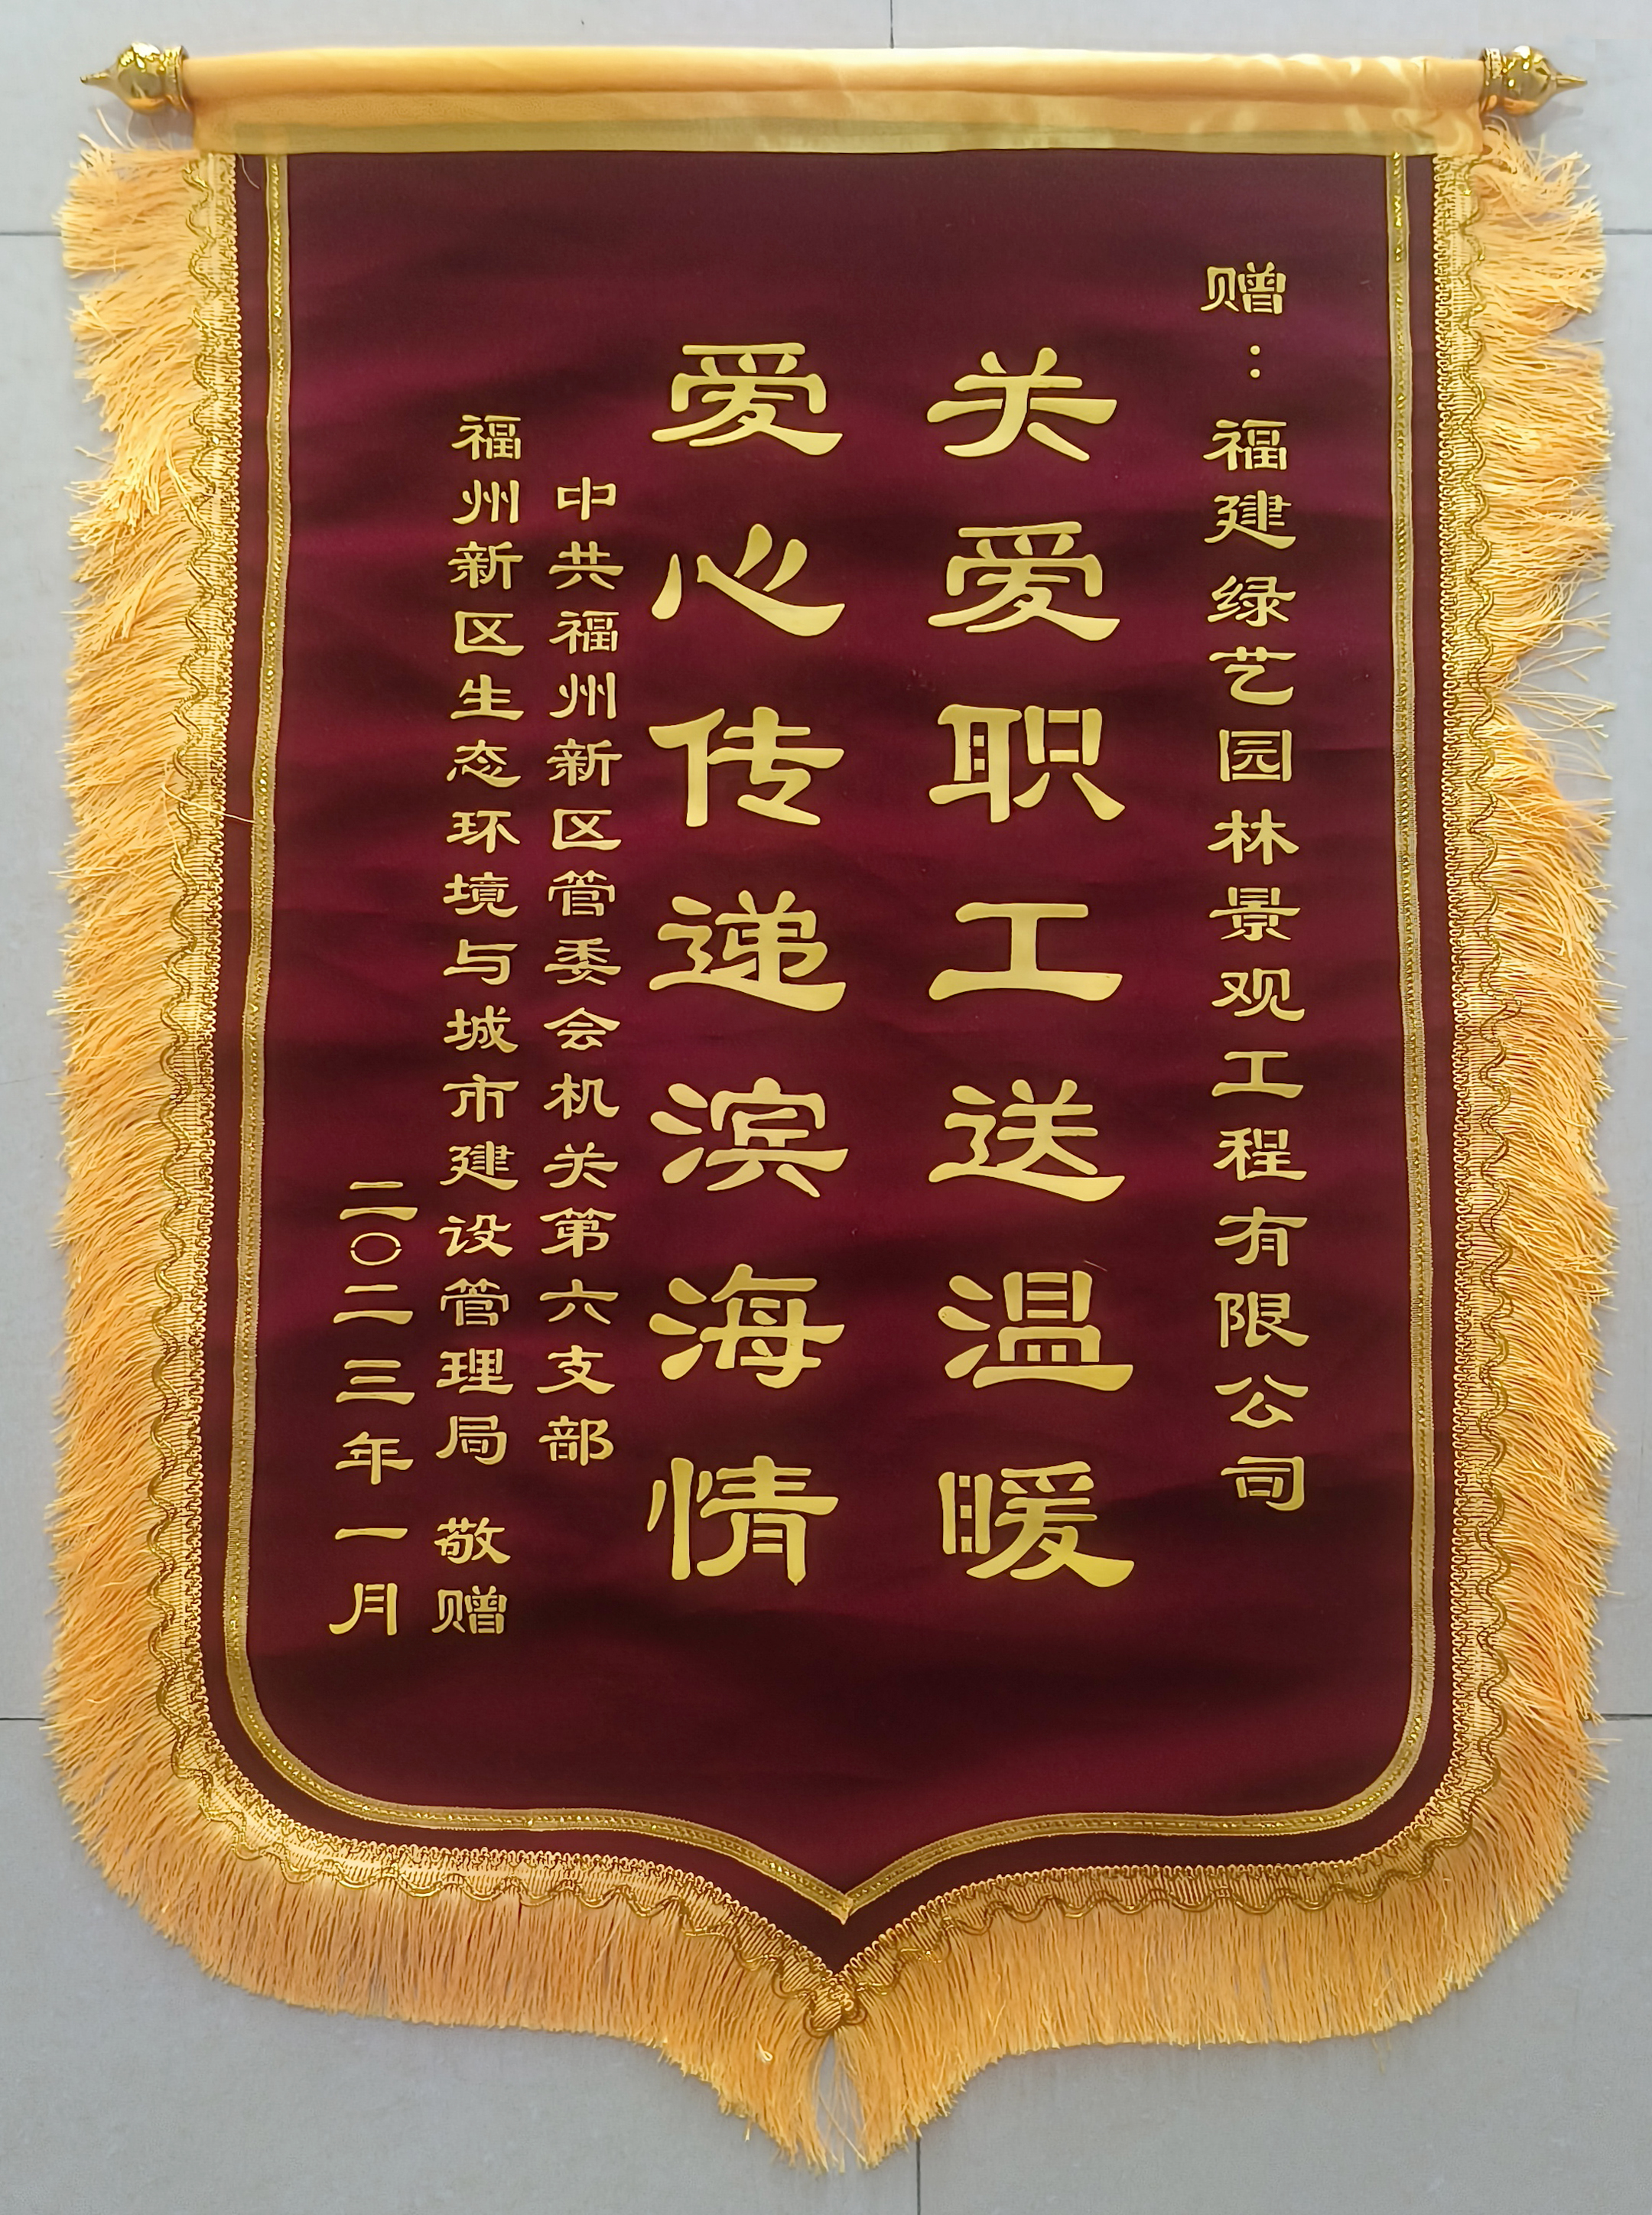 赠：福建绿艺园林景观工程有限公司
关爱职工送温暖
爱心传递滨海情
中共福州新区管委会机关第六支部
福州新区生态环境与城市建设管理局 敬赠
二〇二三年一月